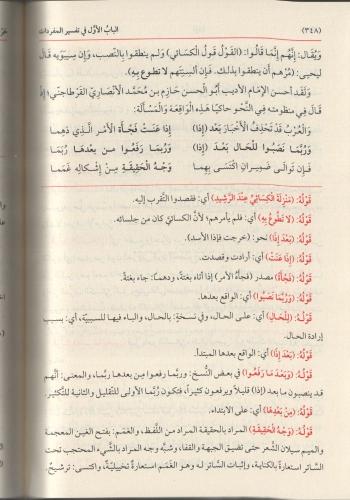 (٣٤٨) الباب الأوّل في تفسير المفردات
وَيُقَال: إِنَّهُم إِنَّمَا قَالُوا: (القَوْلُ قَولُ الكِسَائي) وَلم يَنطقوا بِالنَّصب، وَإِن سِيبَوَيْه قَالَ
ليحيى: (مُرْهم أَن ينطقوا بذلك. فَإِن أَلسِنَتَهم لَا تطوع بِهِ).
وَلَقَد أحسن الإِمَام الأديب أَبُو الحسن حَازِم بن مُحَمَّد الأَنْصَارِيّ القرطاجني؛ إذ
قَالَ في منظومته في النَّحْو حاكيًا هَذِه الوَاقِعَة وَالمَسْأَلَة:
وَالعُرْب قَد تَحْذِفُ الأَخْبَارَ بَعْد (إِذا) إِذا عَنَتْ فَجْأَةَ الأَمْرِ الَّذِي دَهِمَا
وَرُبمَا نَصَبُوا لِلحَالِ بَعْدَ (إِذا) وَرُبمَا رَفَعُوا مِن بعدهَا رُبمَا
فَإِن تَوَالَى ضَمِيرانِ اكْتَسَى بِهِمَا وَجْهُ الحَقِيقَةِ مِنْ إِشْكَالِهِ غَمَمَا
قَوْلُهُ: (مَنْزِلَةَ الكِسَائِيِّ عِنْدَ الرَّشِيدِ) أي: فقصدوا التقرب إليه.
قَوْلُهُ: (لا تَطُوعُ بِهِ) أي: فلم يأمرهم؛ لأنَّ الكسائيَّ كان من جلسائه.
قَوْلُهُ: (بَعْدَ إِذَا) نحو: (خرجت فإذا الأسد).
قَوْلُهُ: (إِذَا عَنَتْ) أي: أرادت وقصدت.
قَوْلُهُ: (فَجْأَةَ) مصدر (فجأه الأمر) إذا أتاه بغتةً، ودهمت: جاء بغتةً.
قَوْلُهُ: (وَرُبَّمَا نَصَبُوا) أي: الواقع بعدها.
قَوْلُهُ: (لِلْحَالِ) أي: على الحال، وفي نسخة: بالحال، والباء فيها للسببيّة، أي: بسبب
إرادة الحال.
قَوْلُهُ: (بَعْدَ إِذَا) أي: الواقع بعدها المبتدأ.
قَوْلُهُ: (وَبَعْدَ مَا رَفَعُوا) في بعض النُّسخ: وربَّما رفعوا من بعدها ربما، والمعنى: أنَّهم
قد ينصبون ما بعد (إذا) قليلًا ويرفعون كثيرًا، فتكون رُبَّما الأولى للتقليل والثانية للتَّكثير.
قَوْلُهُ: (مِنْ بَعْدِهَا) أي: على الابتداء.
قَوْلُهُ: (وَجْهُ الحَقِيقَةِ) المراد بالحقيقة المراد من اللَّفظ، والغَمَم: بفتح الغين المعجمة
والميم سيلان الشعر حتى تضيق الجبهة والقفا، وشبَّه وجه المراد بالشَّيء المحتجب تحت
السَّاتر استعارةً بالكناية، وإثبات السَّاتر له وهو الغَمَم استعارةً تخييليّةً، واكتسى: ترشيحٌ.